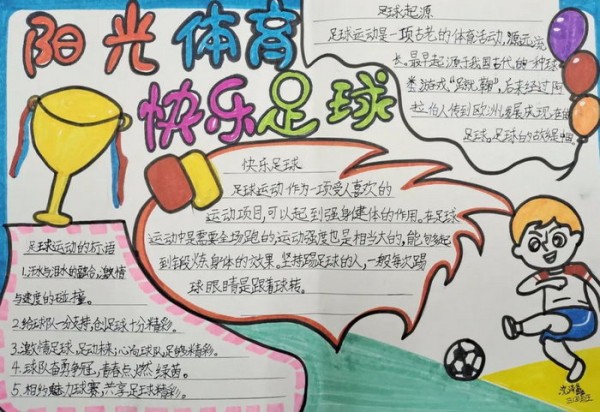 阳光体育
快乐足球
足球起源
足球运动是一项古老的体育活动,源远流
长。最早起源于我国古代的一种球
类游戏“蹴鞠”,后来经过阿
拉伯人传到欧洲,发展成现在的
足球。足球的故乡是中国
快乐足球
足球运动作为一项受人喜欢的
运动项目,可以起到强身健体的作用。在足球
运动中是需要全场跑的,运动强度也是相当大的,能够起
到锻炼身体的效果。坚持踢足球的人,一般每次踢
球眼睛是跟着球转。
足球运动的标语
1.汗水与泪水的融合,激情
与速度的碰撞。
2.给球队一分支持,创足球十分精彩。
3.激情足球,足动林,心向球队,足够精彩。
4.球队奋勇争冠,青春点燃绿茵。
5.相约魅力球赛,共享足球精彩。